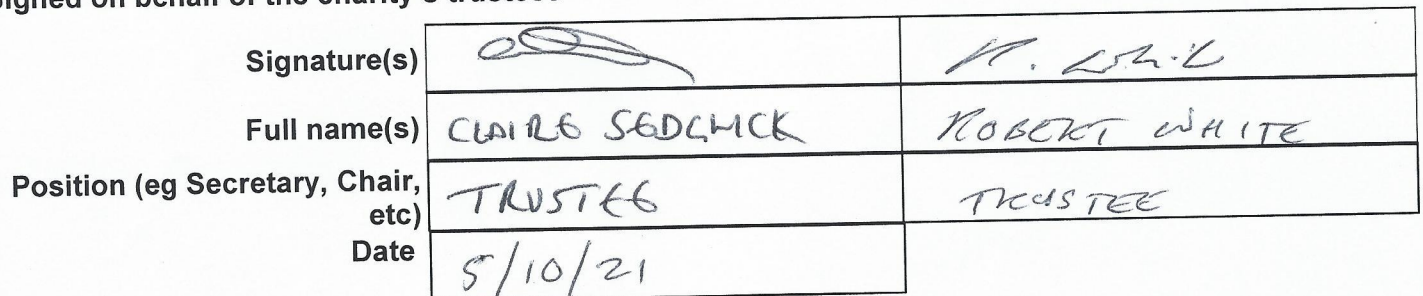 Signature(s) R. White
Full name(s) CLAIRE SEDGWICK ROBERT WHITE
Position (eg Secretary, Chair, etc) TRUSTEE TRUSTEE
Date 5/10/21